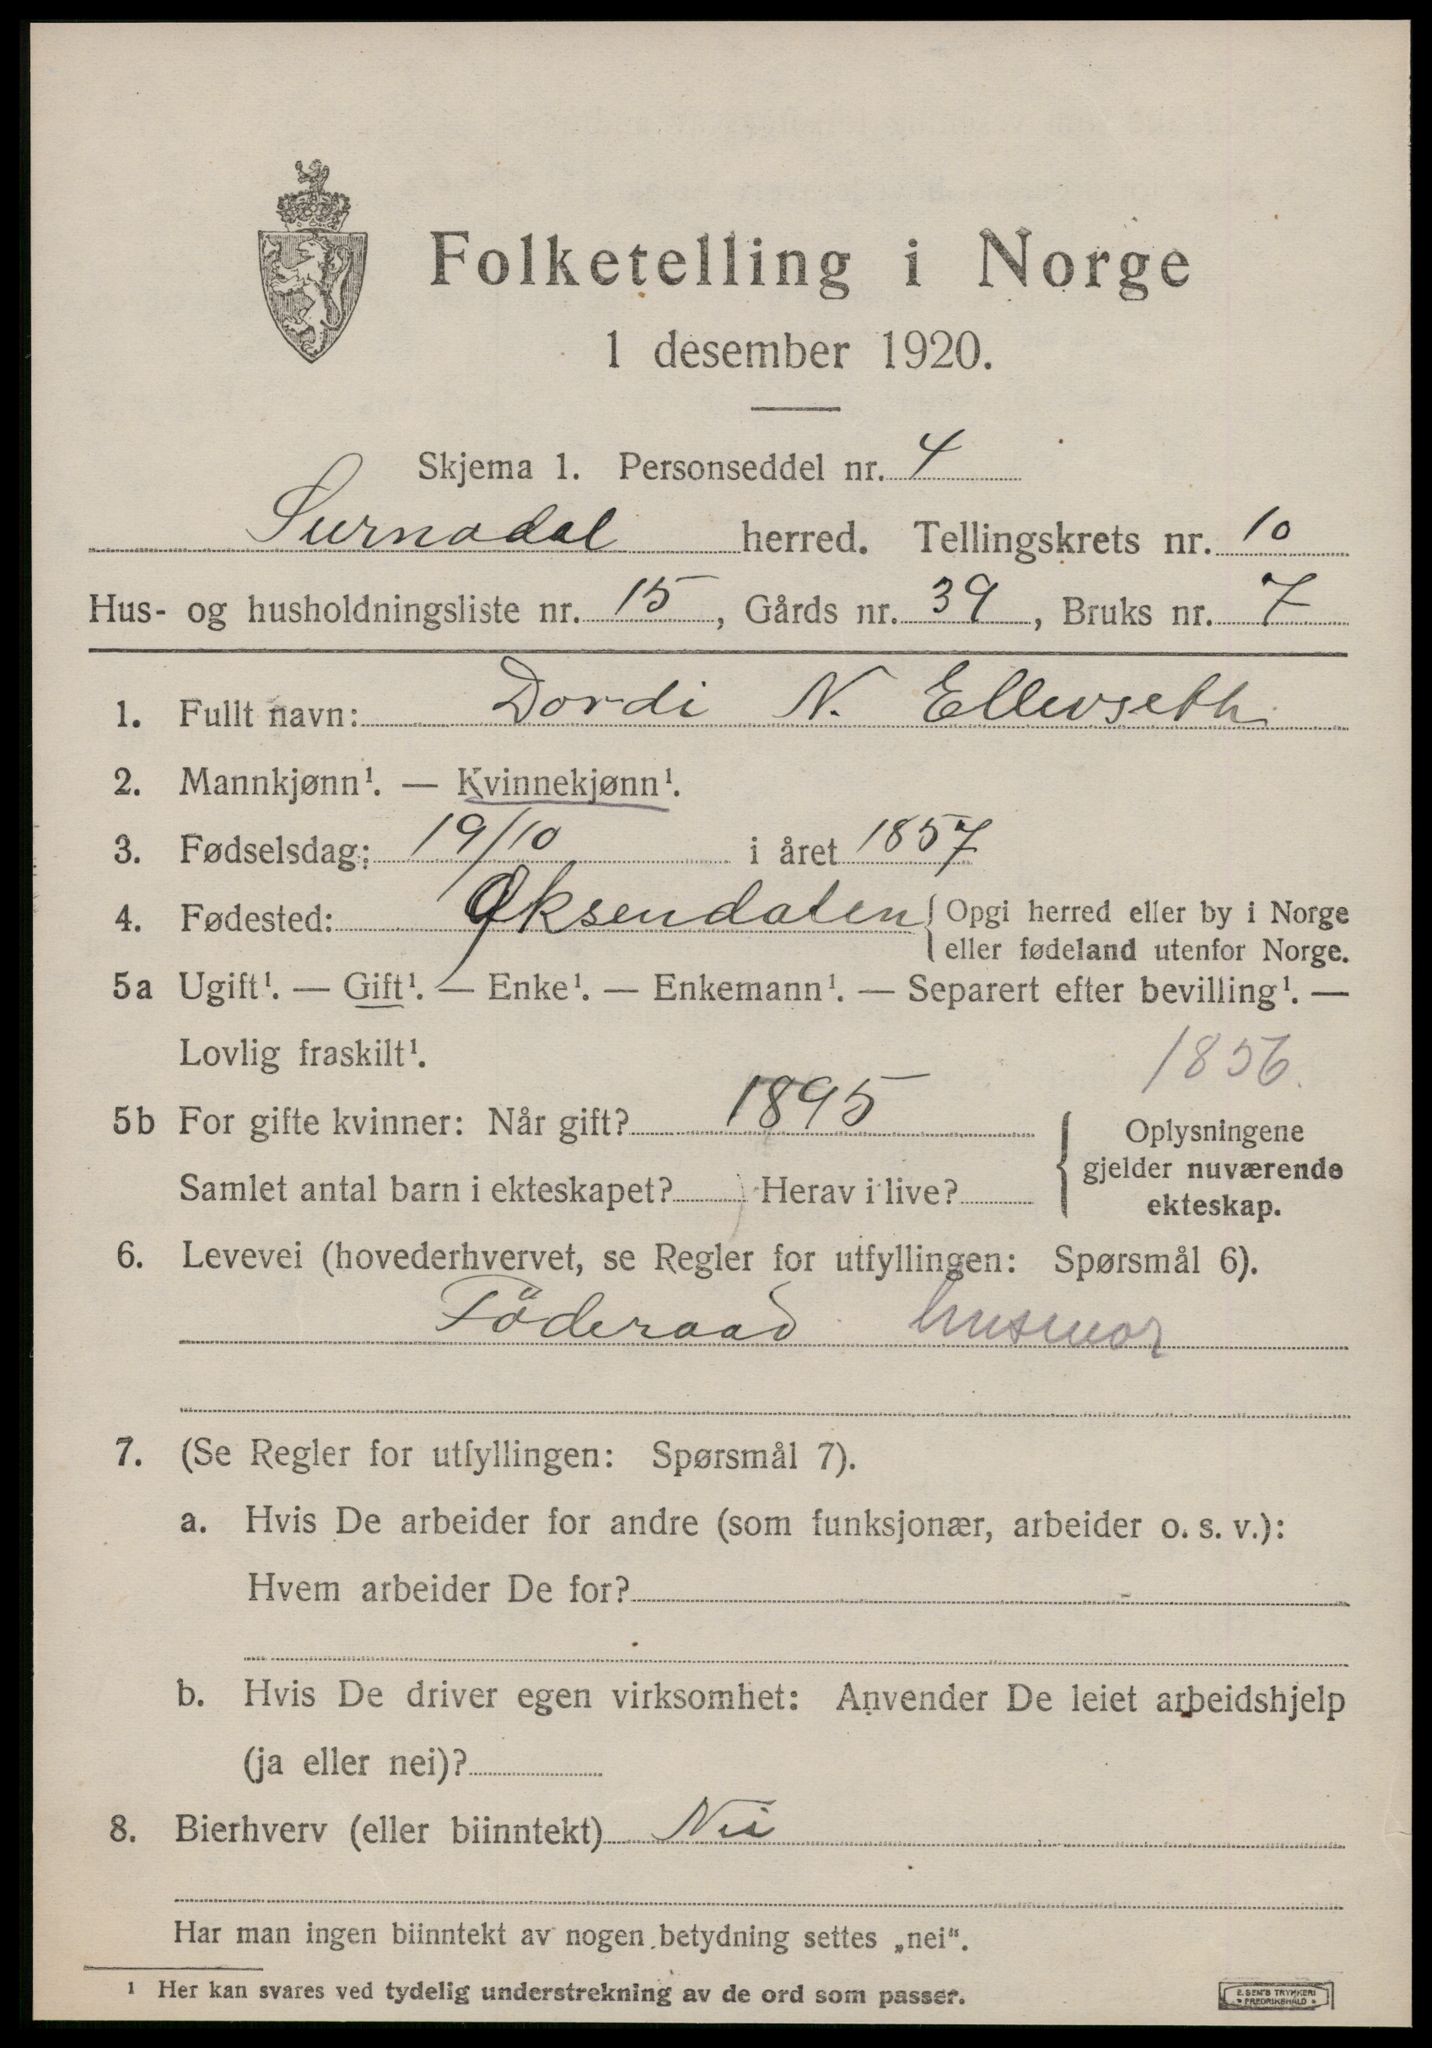 Folketelling i Norge
1 desember 1920.
Skjema 1. Personseddel nr. 4
Surnadal herred. Tellingskrets nr. 10
Hus- og husholdningsliste nr. 15, Gårds nr. 39, Bruks nr. 7
1. Fullt navn: Dordi N. Ellevseth
2. Mannkjønn¹. — Kvinnekjønn¹.
3. Fødselsdag: 19/10 i året 1857
4. Fødested: Øksendalen { Opgi herred eller by i Norge
eller fødeland utenfor Norge.
5a Ugift¹. — Gift¹. — Enke¹. — Enkemann¹. — Separert efter bevilling¹. —
Lovlig fraskilt¹. 1856.
5b For gifte kvinner: Når gift? 1895
Samlet antal barn i ekteskapet? Herav i live?
Oplysningene
gjelder nuværende
ekteskap.
6. Levevei (hovederhvervet, se Regler for utfyllingen: Spørsmål 6).
Föderaad husmor
7. (Se Regler for utfyllingen: Spørsmål 7).
a. Hvis De arbeider for andre (som funksjonær, arbeider o. s. v.):
Hvem arbeider De for?
b. Hvis De driver egen virksomhet: Anvender De leiet arbeidshjelp
(ja eller nei)?
8. Bierhverv (eller biinntekt) Nei
Har man ingen biinntekt av nogen betydning settes „nei“.
¹ Her kan svares ved tydelig understrekning av de ord som passer.
E. SEM'S TRYKKERI
FREDRIKSHALD